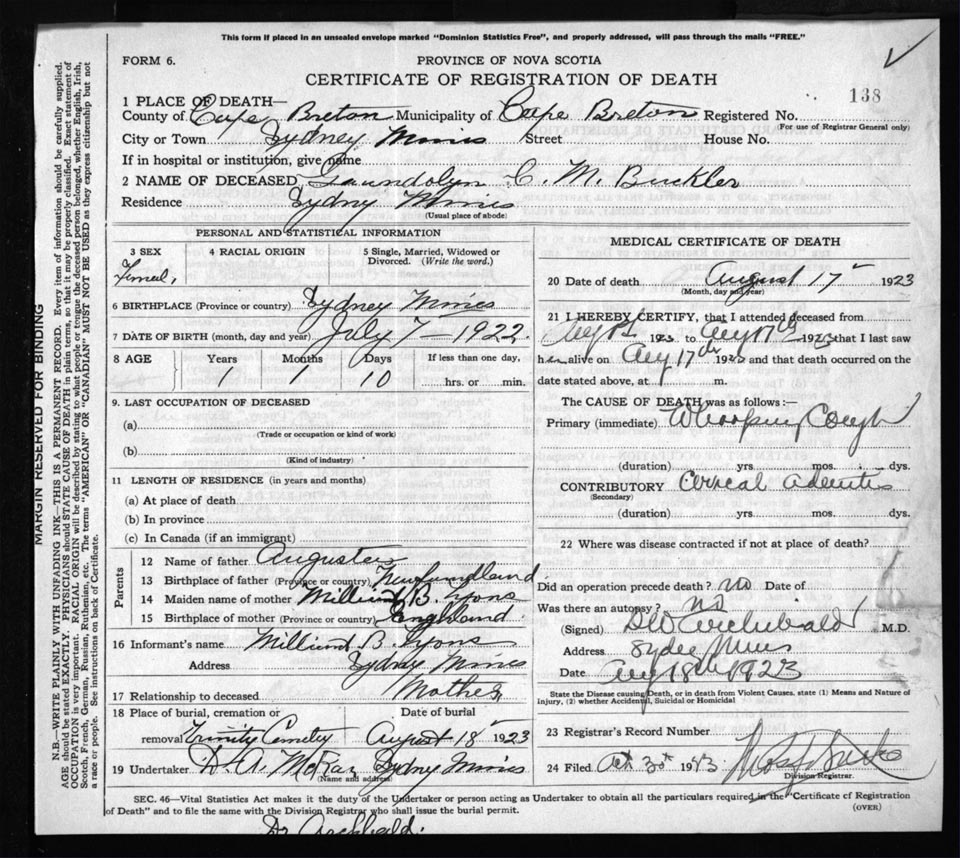 This form if placed in an unsealed envelope marked "Dominion Statistics Free", and properly addressed, will pass through the mails "FREE."
FORM 6.
PROVINCE OF NOVA SCOTIA
CERTIFICATE OF REGISTRATION OF DEATH
138
1 PLACE OF DEATH—
County of Cape Breton Municipality of Cape Breton Registered No.
(For use of Registrar General only)
City or Town Sydney Mines Street House No.
If in hospital or institution, give name
2 NAME OF DECEASED C. M. Buckler
Residence Sydney Mines
(Usual place of abode)
PERSONAL AND STATISTICAL INFORMATION
3 SEX 4 RACIAL ORIGIN 5 Single, Married, Widowed or
Divorced. (Write the word.)
6 BIRTHPLACE (Province or country) Sydney Mines
7 DATE OF BIRTH (month, day and year) July 7—1922
8 AGE Years Months Days If less than one day,
1 1 10 hrs. or min.
9. LAST OCCUPATION OF DECEASED
(a)
(Trade or occupation or kind of work)
(b)
(Kind of industry)
11 LENGTH OF RESIDENCE (in years and months)
(a) At place of death
(b) In province
(c) In Canada (if an immigrant)
Parents
12 Name of father
13 Birthplace of father (Province or country) Newfundland
14 Maiden name of mother B. Lyons
15 Birthplace of mother (Province or country) England
16 Informant's name B. Lyons
Address Sydney Mines
17 Relationship to deceased Mother
18 Place of burial, cremation or Date of burial
removal Trinity Cemetery August 18 1923
19 Undertaker D. A. McRae Sydney Mines
(Name and address)
MEDICAL CERTIFICATE OF DEATH
20 Date of death August 17 1923
(Month, day and year)
21 I HEREBY CERTIFY, that I attended deceased from
1923 to Aug 17th 1923 that I last saw
her alive on Aug 17th 1923 and that death occurred on the
date stated above, at m.
The CAUSE OF DEATH was as follows:—
Primary (immediate) Whooping Cough
(duration) yrs. mos. dys.
CONTRIBUTORY
(Secondary)
(duration) yrs. mos. dys.
22 Where was disease contracted if not at place of death?
Did an operation precede death? no Date of
Was there an autopsy? no
(Signed) DW Archibald M.D.
Address
Date Aug 18th 1923
State the Disease causing Death, or in death from Violent Causes, state (1) Means and Nature of
Injury, (2) whether Accidental, Suicidal or Homicidal
23 Registrar's Record Number
24 Filed 30th
Division Registrar.
SEC. 46—Vital Statistics Act makes it the duty of the Undertaker or person acting as Undertaker to obtain all the particulars required in the "Certificate of Registration
of Death" and to file the same with the Division Registrar who shall issue the burial permit. (OVER)
Dr Archibald.
MARGIN RESERVED FOR BINDING
N.B.—WRITE PLAINLY WITH UNFADING INK—THIS IS A PERMANENT RECORD. Every item of information should be carefully supplied.
AGE should be stated EXACTLY. PHYSICIANS should STATE CAUSE OF DEATH in plain terms, so that it may be properly classified. Exact statement of
OCCUPATION is very important. RACIAL ORIGIN will be described by stating to what people or tongue the deceased person belonged, whether English, Irish,
Scotch, French, German, Russian, Ruthenian, etc. The terms "AMERICAN" OR "CANADIAN" MUST NOT BE USED as they express citizenship but not
a race or people. See instructions on back of Certificate.